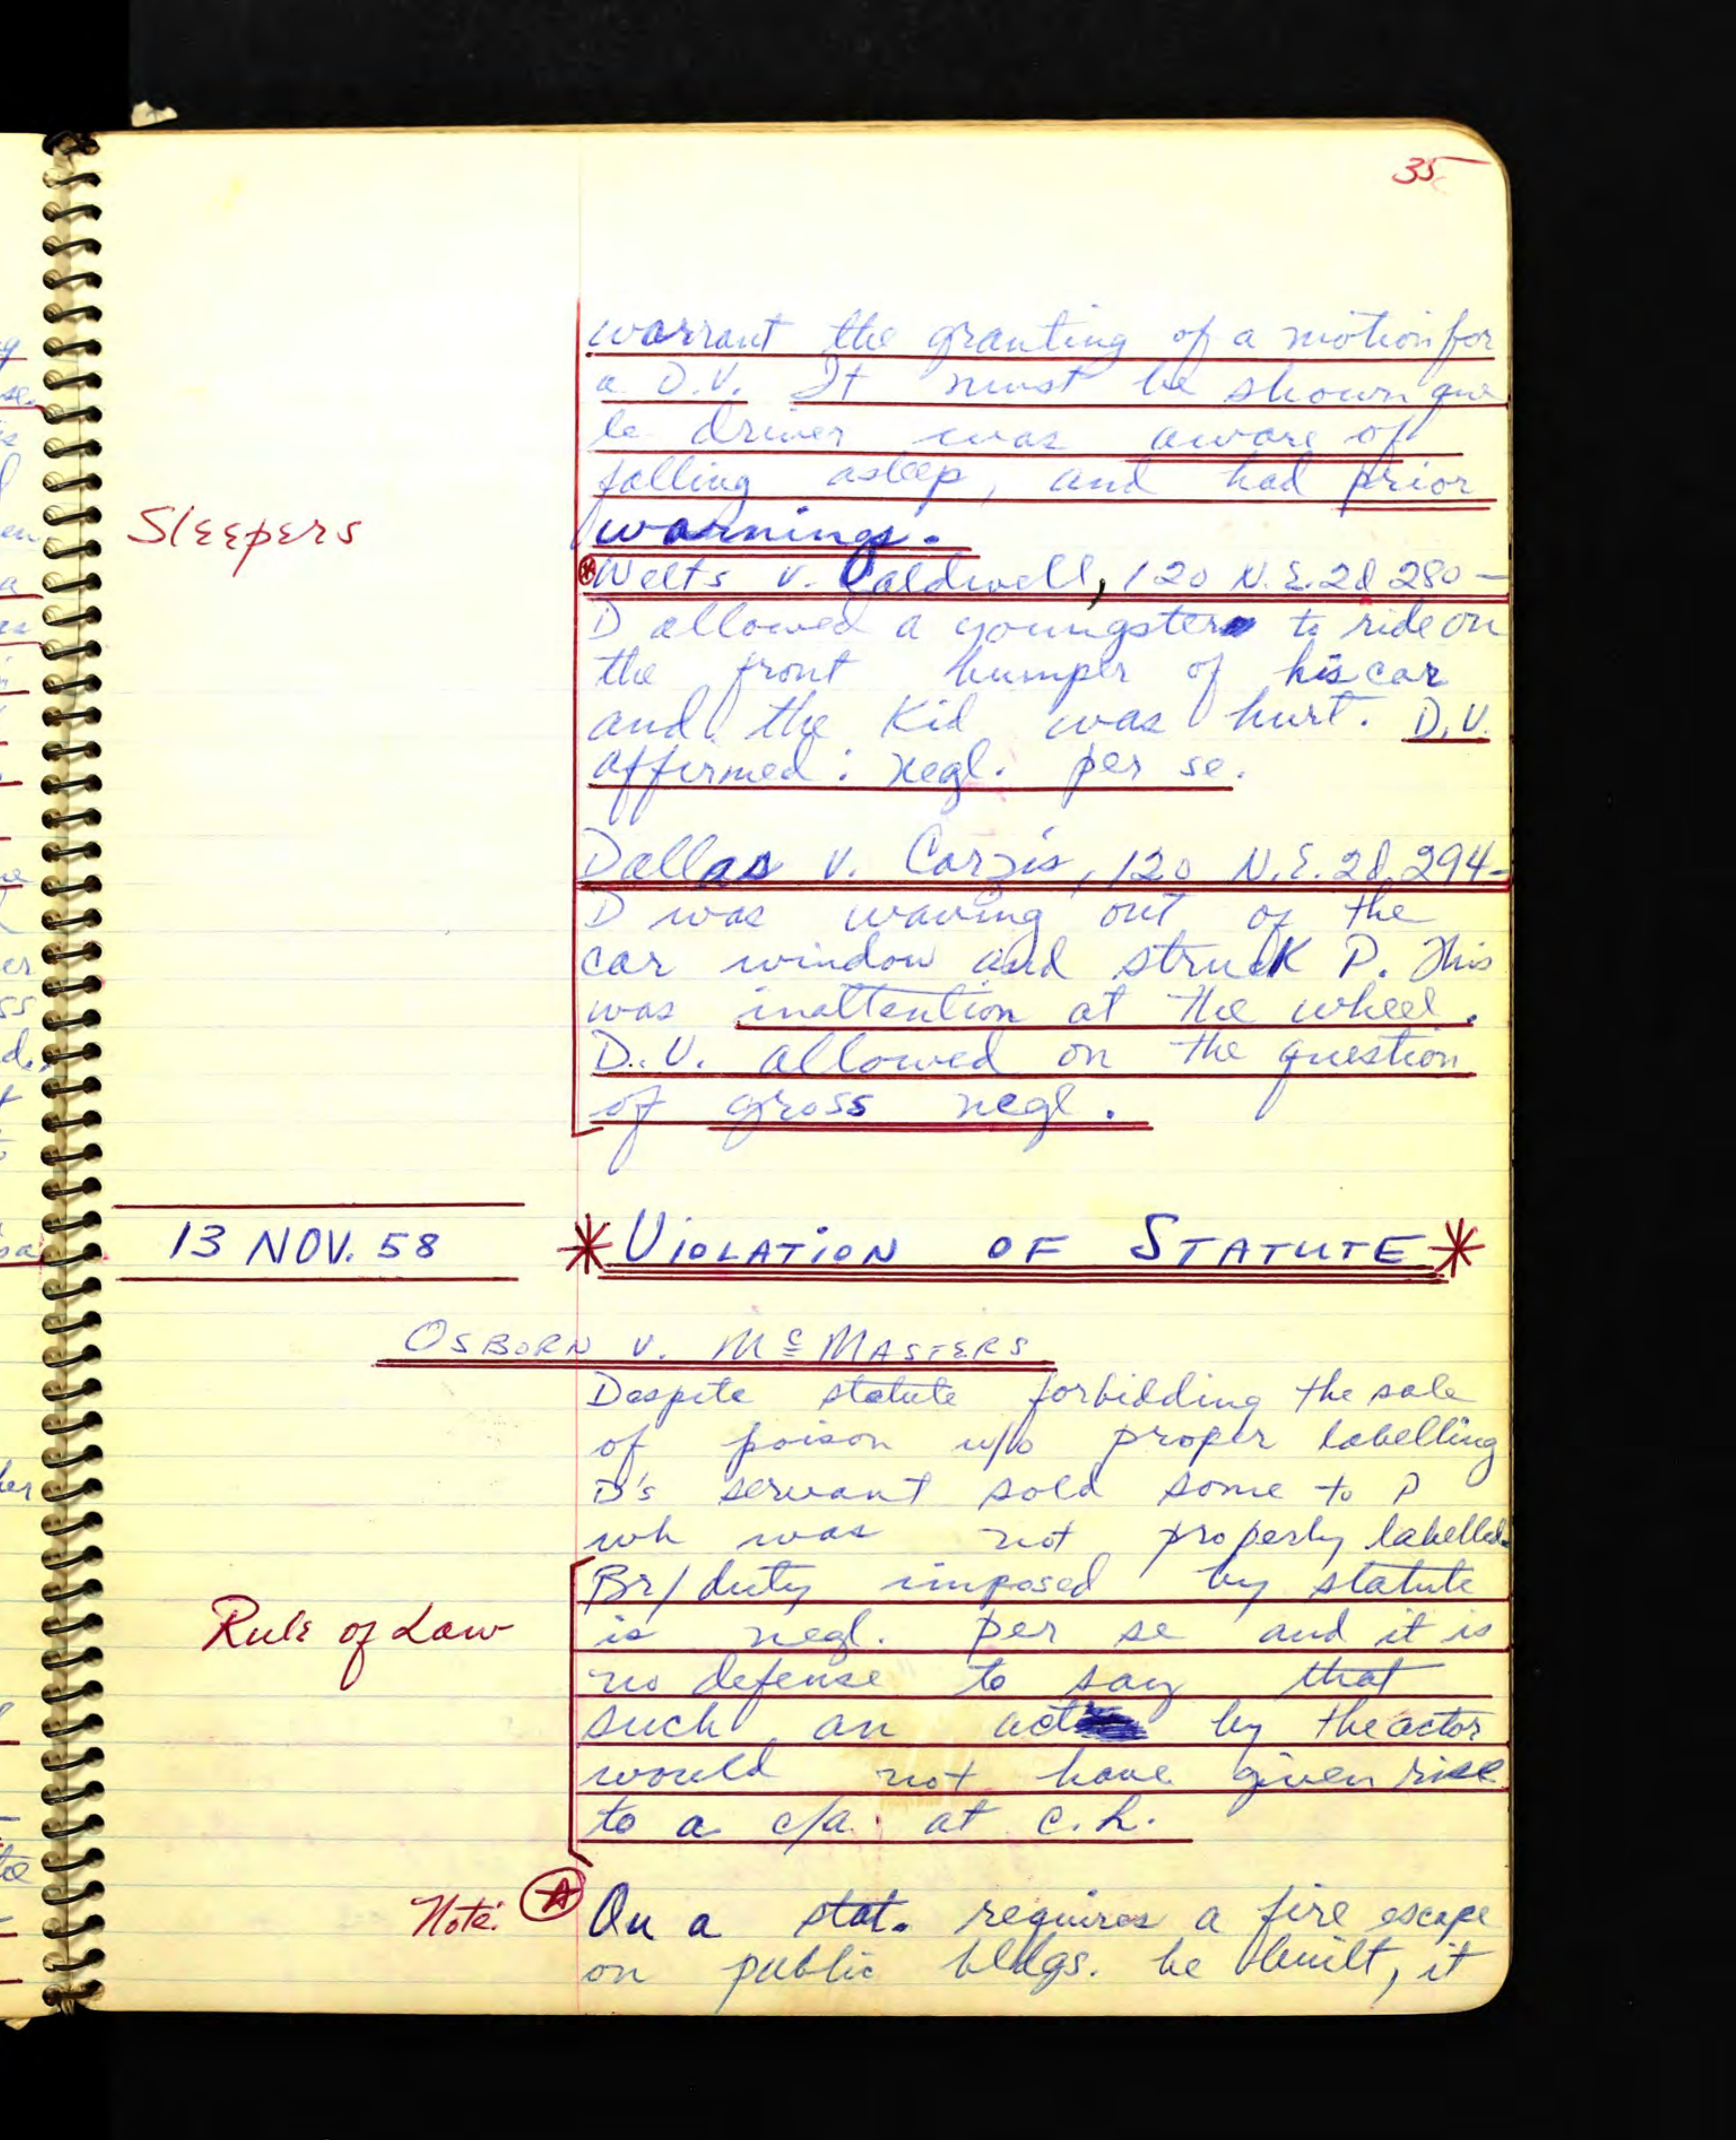 35
warrant the granting of a motion for
a D.V. It must be shown que
le driver was aware of
falling asleep, and had prior
Sleepers
warnings.
Welts v. Caldwell, 120 N.E.2d 280 —
D allowed a youngster to ride on
the front bumper of his car
and the Kid was hurt. D.V.
affirmed: negl. per se.
Dallas v. Carzis, 120 N.E.2d 294 -
D was waving out of the
car window and struck P. This
was inattention at the wheel.
D.V. allowed on the question
of gross negl.
13 NOV. 58
* VIOLATION OF STATUTE *
OSBORN v. McMASTERS
Despite statute forbidding the sale
of poison w/o proper labelling
D's servant sold some to P
wh was not properly labelled.
Br/duty imposed by statute
Rule of Law
is negl. per se and it is
no defense to say that
such an act by the actor
would not have given rise
to a c/a. at c.L.
Note: On a stat. requires a fire escape
on public bldgs. be built, it